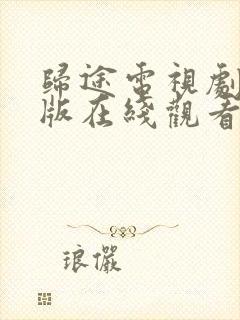 歸途電視劇
版在綫觀看
琅儼